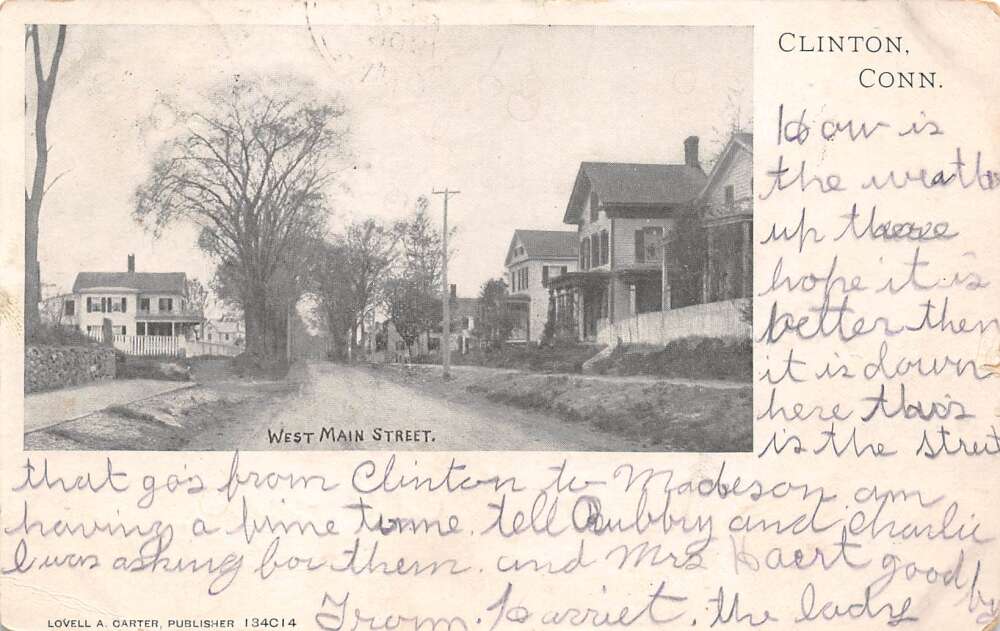 CLINTON,
CONN.
How is
the weather
up there
hope it is
better then
it is down
here this
is the street
WEST MAIN STREET.
that gos from Clinton to Madeson am
having a fime time. tell Bubbry and Charlie
I was asking for them. and Mrs Haert good by
From. Harriet. the lady
LOVELL A. CARTER, PUBLISHER 134C14